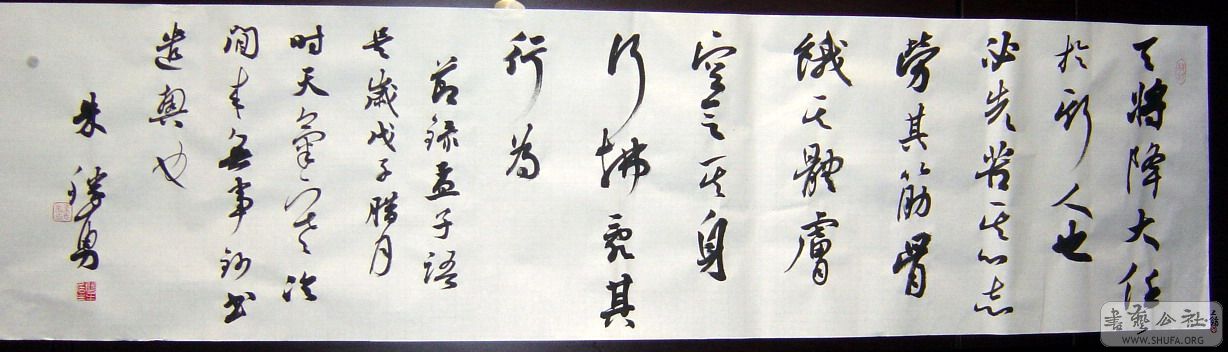 天將降大任
於斯人也
必先苦其心志
勞其筋骨
餓其體膚
空乏其身
行拂亂其
行為
節錄孟子語
是歲戊子臘月
时天氣寒冷
閒来無事鈔書
遣興也
朱勇
書藝公社
WWW.SHUFA.ORG